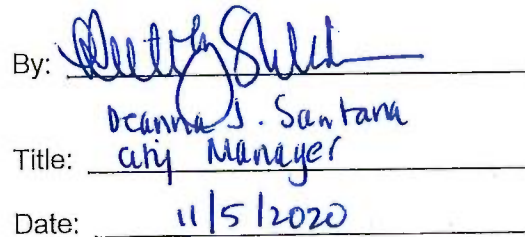 By:
Deanna J. Santana
Title: City Manager
Date: 11/5/2020